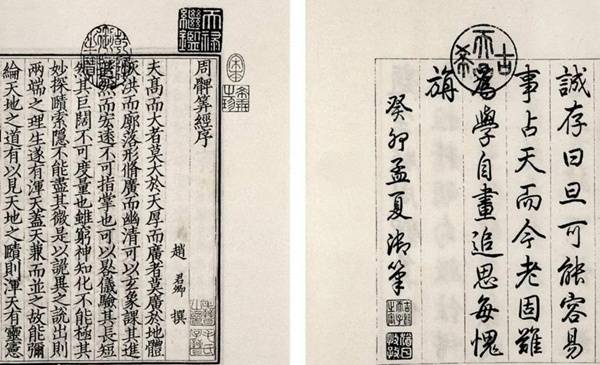 古希天子
誠存曰旦可能容易
事占天而今老固難
學自畫追思每愧
旃
癸卯孟夏御筆
天祿繼鑑
宋本
周髀算經序
趙君卿撰
夫高而大者莫大於天厚而廣者莫廣於地體
恢洪而廓落形脩廣而幽清可以玄象課其進
退然而宏遠不可指掌也可以晷儀驗其長短
然其巨闊不可度量也雖窮神知化不能極其
妙探賾索隱不能盡其微是以詭異之說出則
兩端之理生遂有渾天蓋天兼而並之故能彌
綸天地之道有以見天地之賾則渾天有靈憲